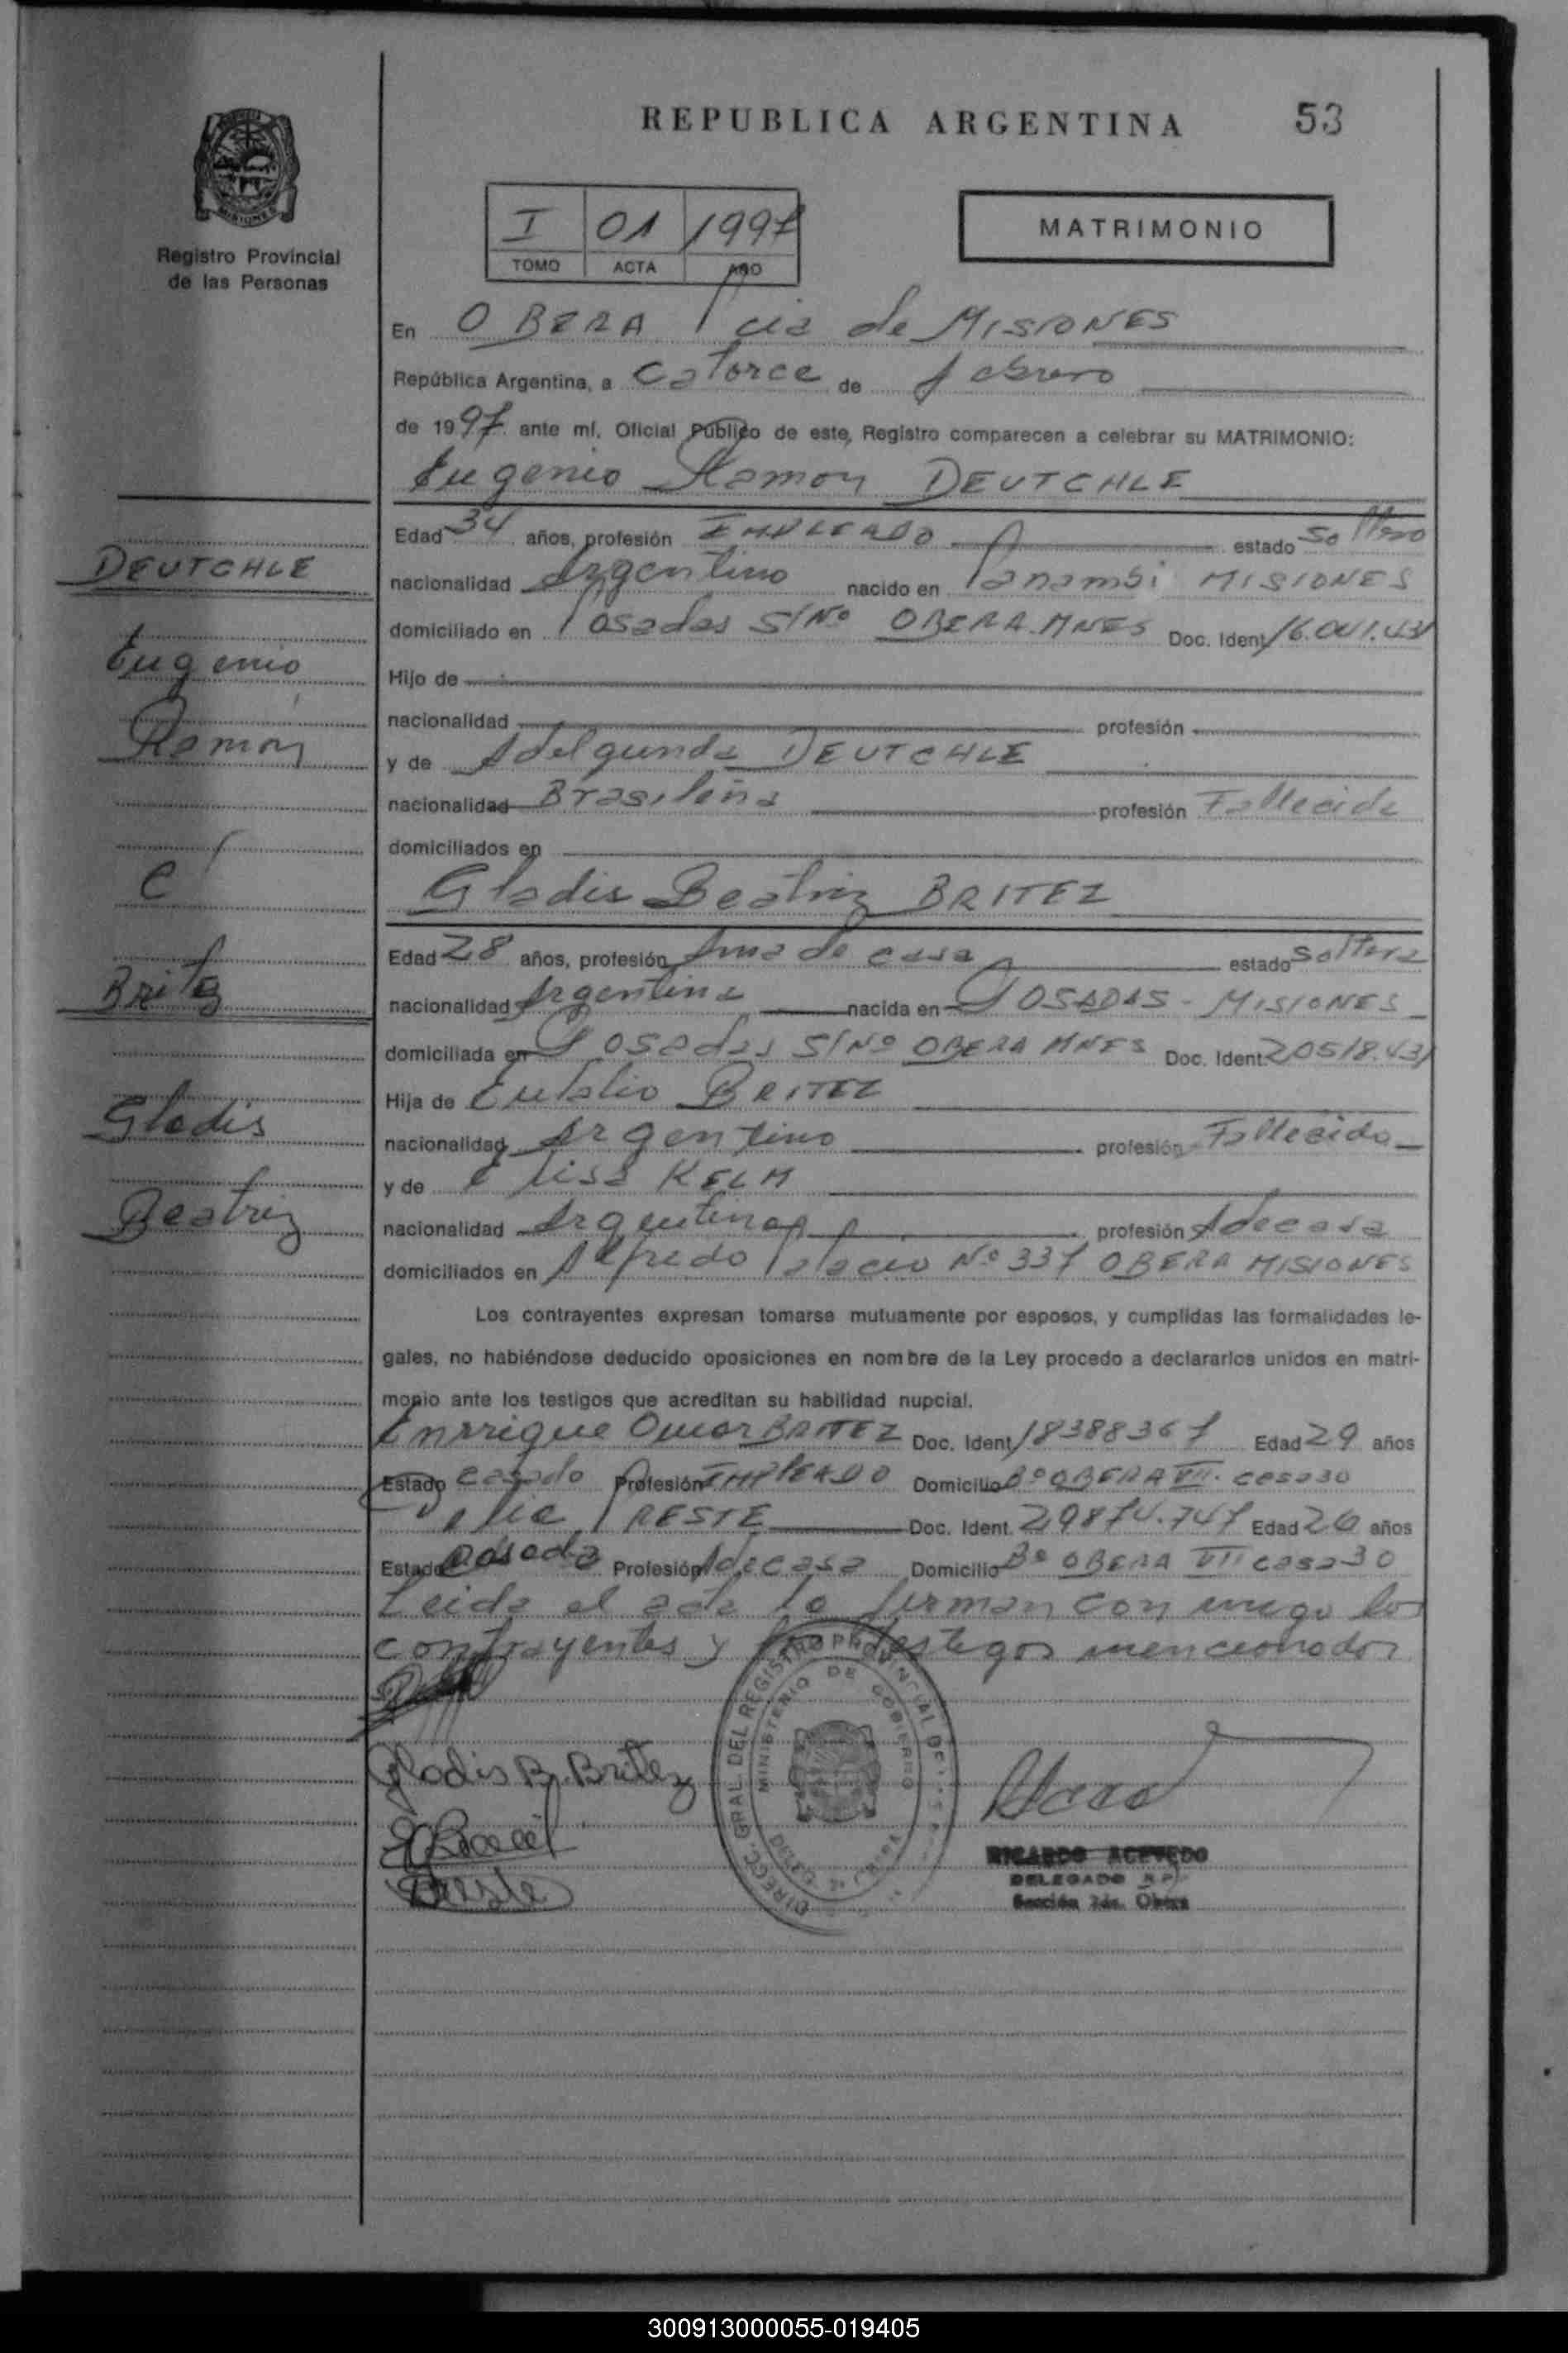 REPUBLICA ARGENTINA 53
MISIONES
Registro Provincial
de las Personas
I 01 1997
TOMO ACTA AÑO
MATRIMONIO
En OBERA Pcia de MISIONES
República Argentina, a Catorce de febrero
de 1997 ante mí, Oficial Público de este, Registro comparecen a celebrar su MATRIMONIO:
Eugenio Ramon DEUTCHLE
Edad 34 años, profesión EMPLEADO estado soltero
DEUTCHLE
nacionalidad Argentino nacido en Panambi MISIONES
domiciliado en Posadas S/Nº OBERA MNES Doc. Ident
Eugenio
Hijo de
nacionalidad profesión
Ramon
y de Adelgunda DEUTCHLE
nacionalidad Brasileña profesión Fallecida
domiciliados en
C/
Gladis Beatriz BRITEZ
Edad 28 años, profesión Ama de casa estado soltera
Britez
nacionalidad Argentina nacida en POSADAS - MISIONES
domiciliada en Posadas S/Nº OBERA MNES Doc. Ident. 20518.431
Hija de Eulalio BRITEZ
Gladis
nacionalidad Argentino profesión Fallecido
y de Elisa KELM
Beatriz
nacionalidad Argentina profesión Adecasa
domiciliados en Alfredo Palacio Nº 337 OBERA MISIONES
Los contrayentes expresan tomarse mutuamente por esposos, y cumplidas las formalidades le-
gales, no habiéndose deducido oposiciones en nombre de la Ley procedo a declararlos unidos en matri-
monio ante los testigos que acreditan su habilidad nupcial.
Enrrique Omar BRITEZ Doc. Ident 18388367 Edad 29 años
Estado casado Profesión EMPLEADO Domicilio Bº OBERA VII. casa 30
PRESTE Doc. Ident. 29874.747 Edad 26 años
Estado casada Profesión Adecasa Domicilio Bº OBERA VII casa 30
Leida el acta la firman con migo los
contrayentes y los testigos mencionados
DIRECC. GRAL. DEL REGISTRO PROVINCIAL DE
MINISTERIO DE GOBIERNO
Gladis B. Britez
RICARDO ACEVEDO
DELEGADO R.P.
Sección 2da. Obera
300913000055-019405